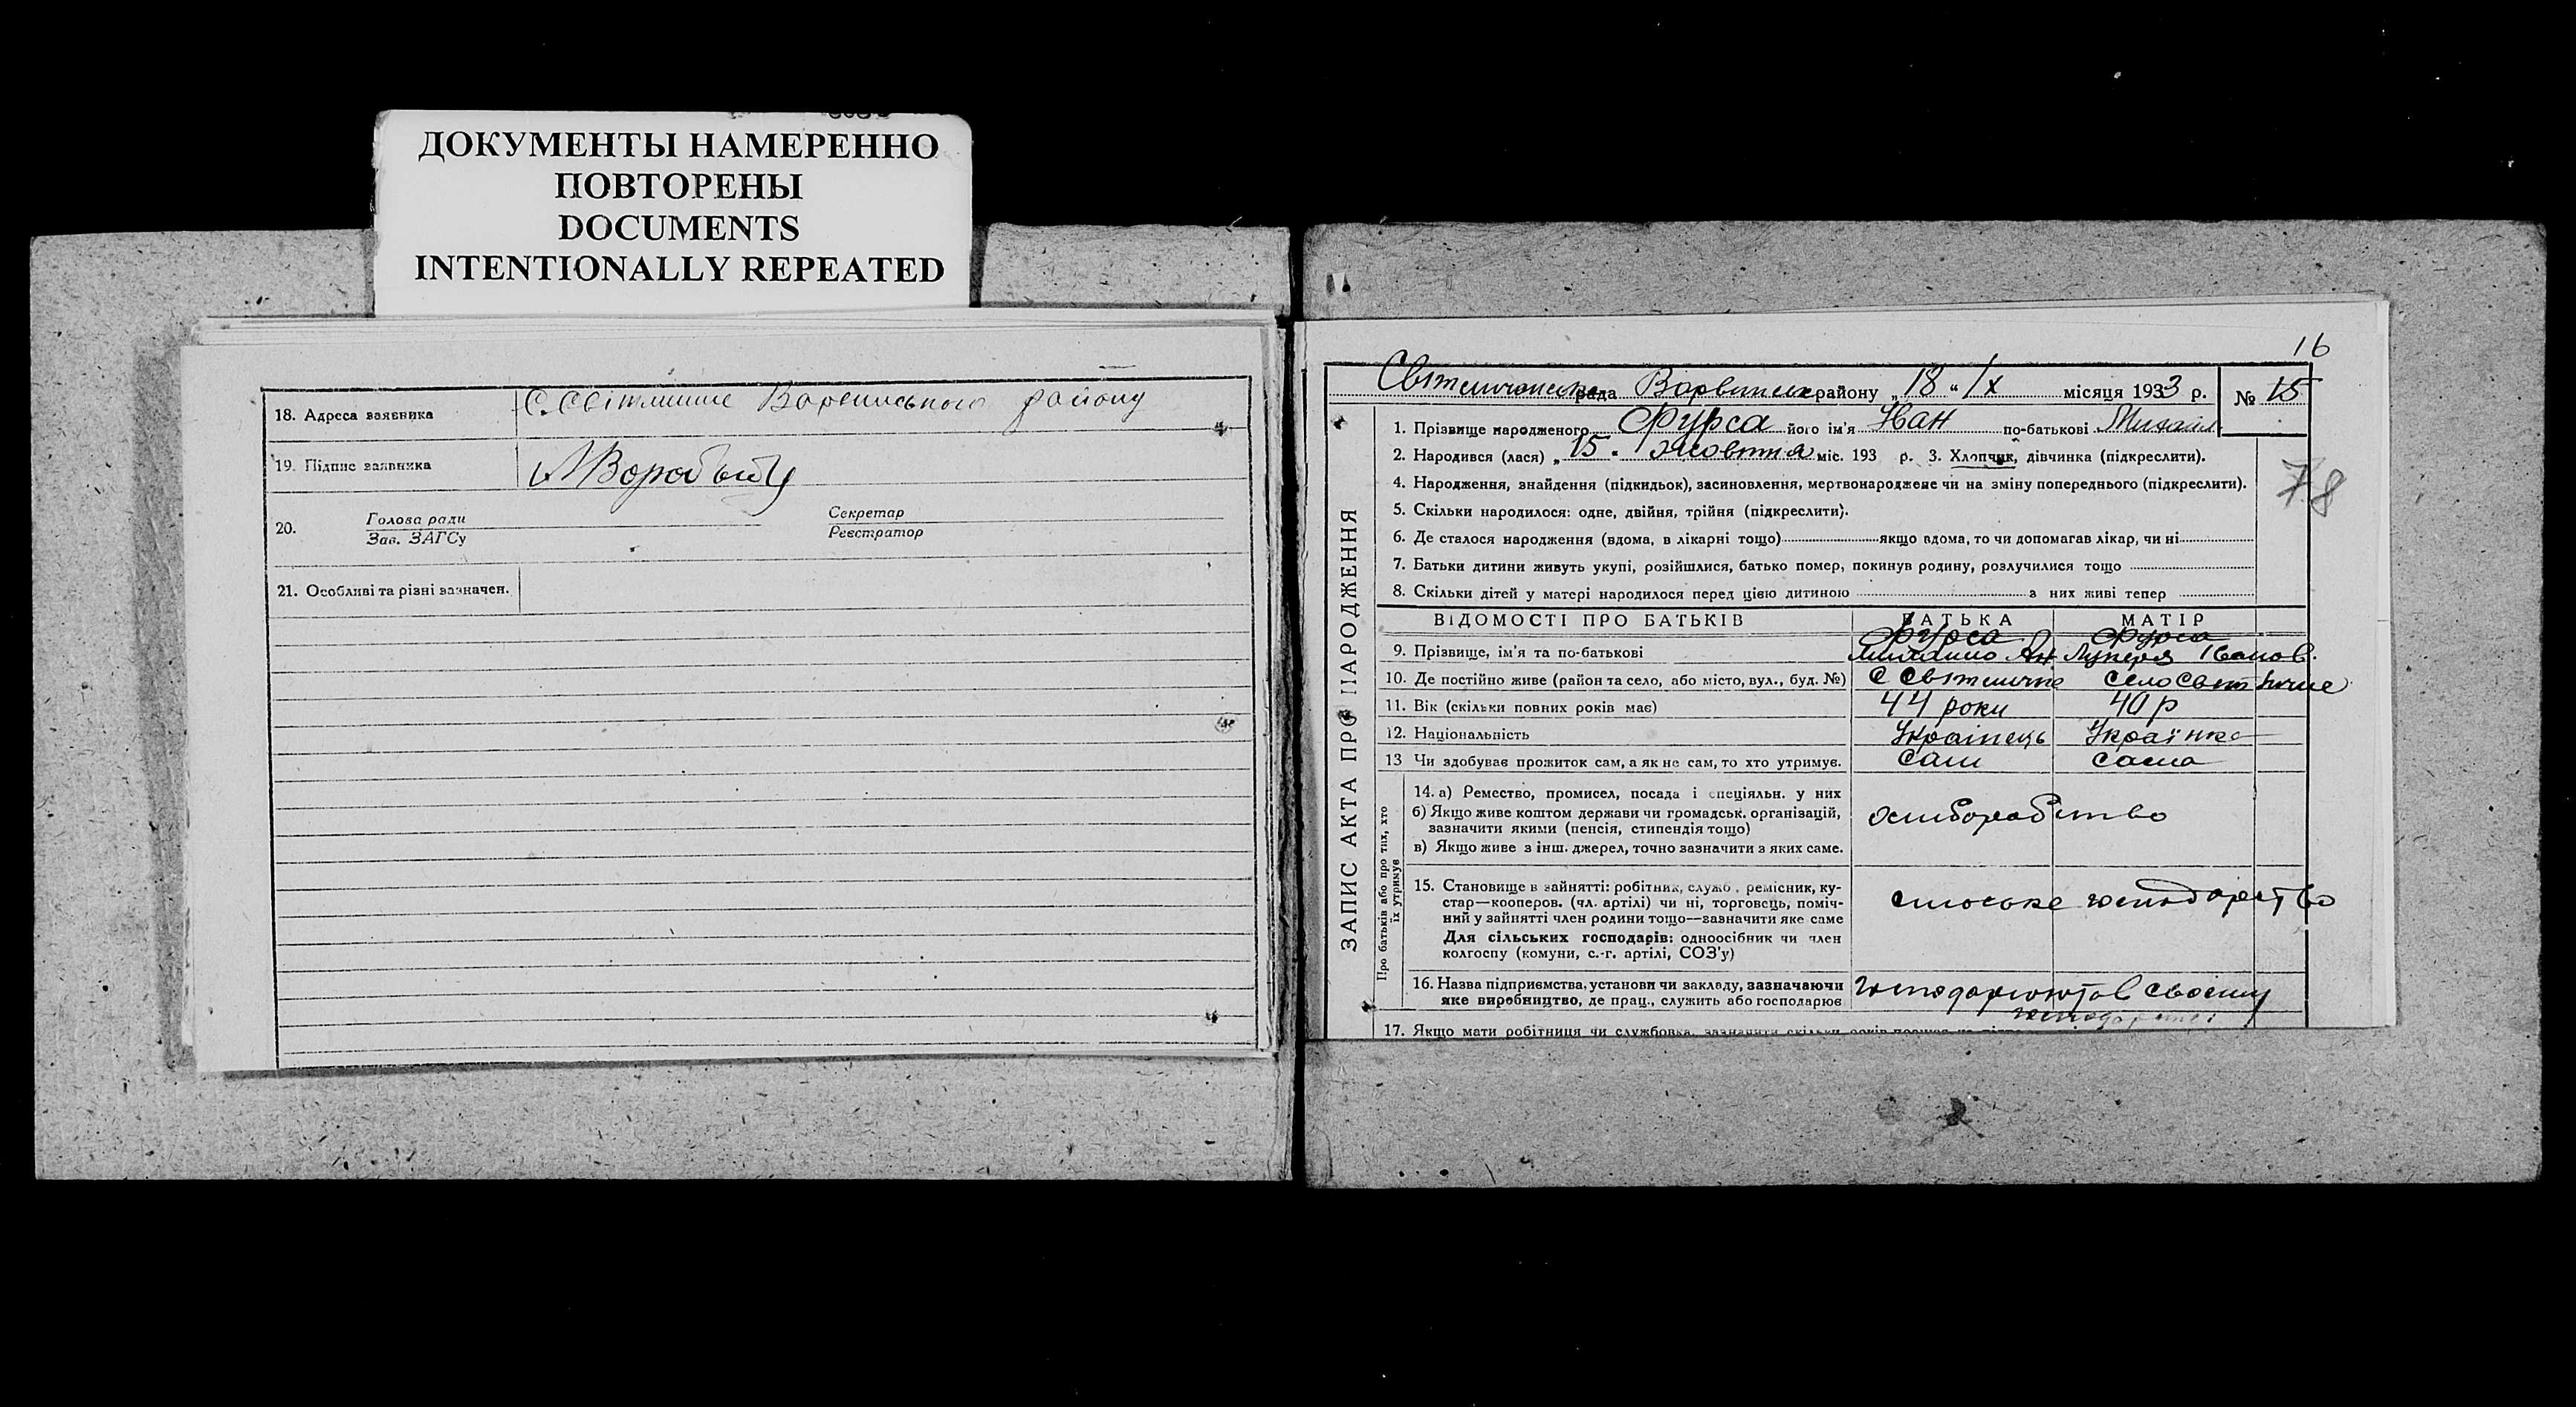 ДОКУМЕНТЫ НАМЕРЕННО
ПОВТОРЕНЫ
DOCUMENTS
INTENTIONALLY REPEATED
18. Адреса заявника С. Світличне Варвинського району
19. Підпис заявника
20. Голова ради Секретар
Зав. ЗАГСу Реєстратор
21. Особливі та різні зазначен.
16
рада району „18 “ IX місяця 1933 р. № 15
ЗАПИС АКТА ПРО НАРОДЖЕННЯ
1. Прізвище народженого Фурса його ім'я Іван по-батькові
2. Народився (лася) „ 15 “ Жовтня міс. 193 р. 3. Хлопчик, дівчинка (підкреслити).
78
4. Народження, знайдення (підкидьок), засиновлення, мертвонароджене чи на зміну попереднього (підкреслити).
5. Скільки народилося: одне, двійня, трійня (підкреслити).
6. Де сталося народження (вдома, в лікарні тощо) якщо вдома, то чи допомагав лікар, чи ні
7. Батьки дитини живуть укупі, розійшлися, батько помер, покинув родину, розлучилися тощо
8. Скільки дітей у матері народилося перед цією дитиною з них живі тепер
ВІДОМОСТІ ПРО БАТЬКІВ БАТЬКА МАТІР
Фурса Фурса
9. Прізвище, ім'я та по-батькові Михайло Ан Іванов.
10. Де постійно живе (район та село, або місто, вул., буд. №) С Світличне село Світличне
11. Вік (скільки повних років має) 44 роки 40 р
12. Національність Українець Українка
13 Чи здобуває прожиток сам, а як не сам, то хто утримує. Сам сама
Про батьків або про тих, хто
їх утримує
14. а) Ремество, промисел, посада і спеціяльн. у них
б) Якщо живе коштом держави чи громадськ. організацій,
зазначити якими (пенсія, стипендія тощо)
в) Якщо живе з інш. джерел, точно зазначити з яких саме.
хліборобство
15. Становище в зайнятті: робітник, служб., ремісник, ку-
стар—кооперов. (чл. артілі) чи ні, торговець, поміч-
ний у зайнятті член родини тощо—зазначити яке саме
Для сільських господарів: одноосібник чи член
колгоспу (комуни, с.-г. артілі, СОЗ'у)
сільське господарство
16. Назва підприємства, установи чи закладу, зазначаючи
яке виробництво, де прац., служить або господарює
господарюють в своєму
17. Якщо мати робітниця чи службовка,